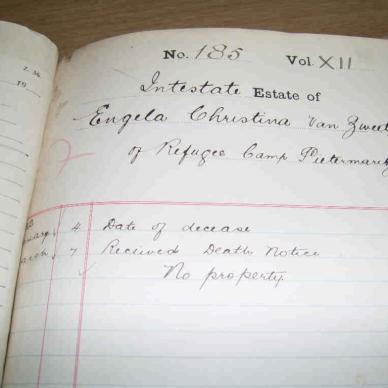 No. 185 Vol. XII
Intestate Estate of
Engela Christina Van Zweet
of Refugee Camp Pietermaritz
4 Date of decease
7 Recieved Death Notice
No property